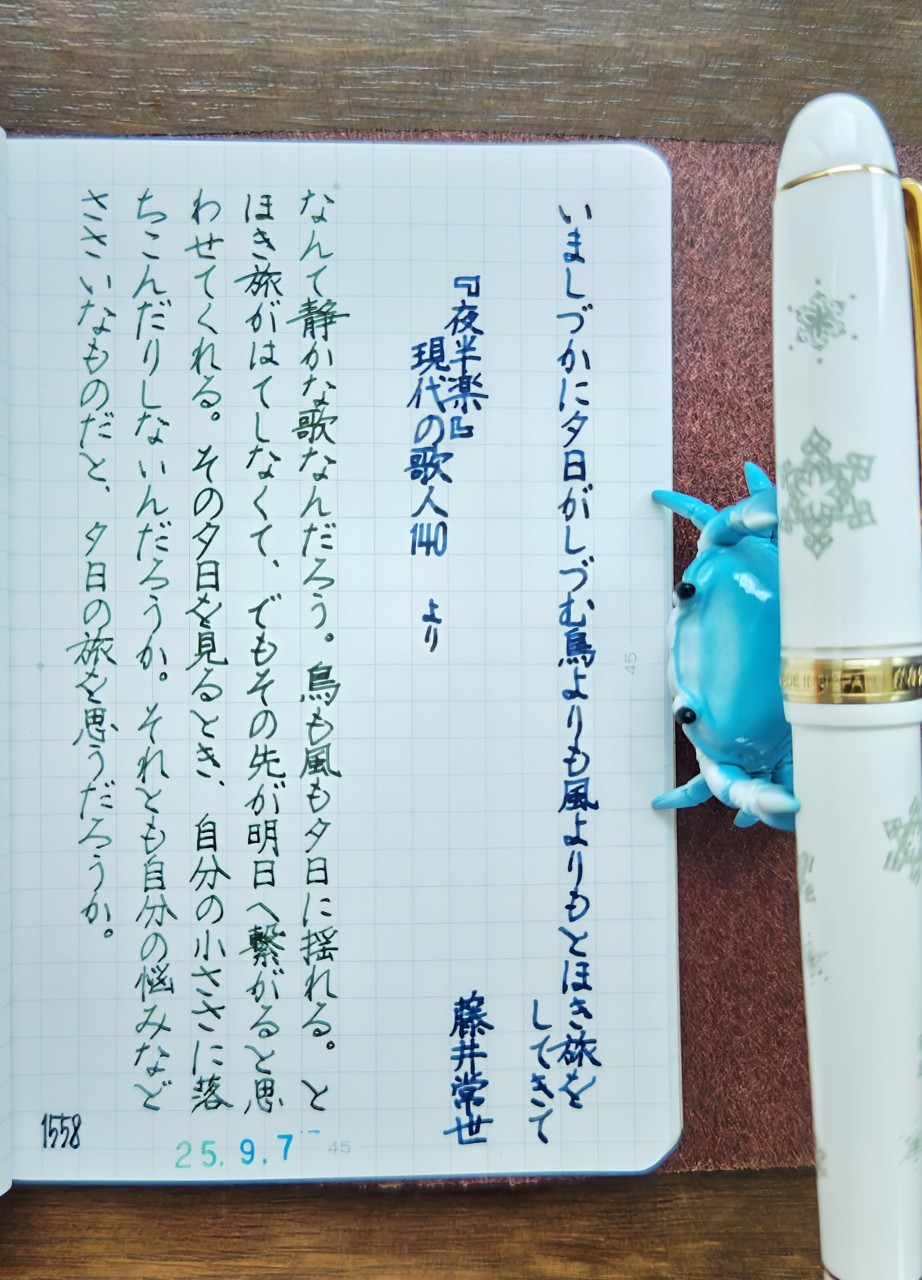 いましづかに夕日がしづむ鳥よりも風よりもとほき旅を
してきて
『夜半楽』
現代の歌人140　より
藤井常世
なんて静かな歌なんだろう。鳥も風も夕日に揺れる。と
ほき旅がはてしなくて、でもその先が明日へ繋がると思
わせてくれる。その夕日を見るとき、自分の小ささに落
ちこんだりしないんだろうか。それとも自分の悩みなど
ささいなものだと、夕日の旅を思うだろうか。
1558
25.9.7
45
45